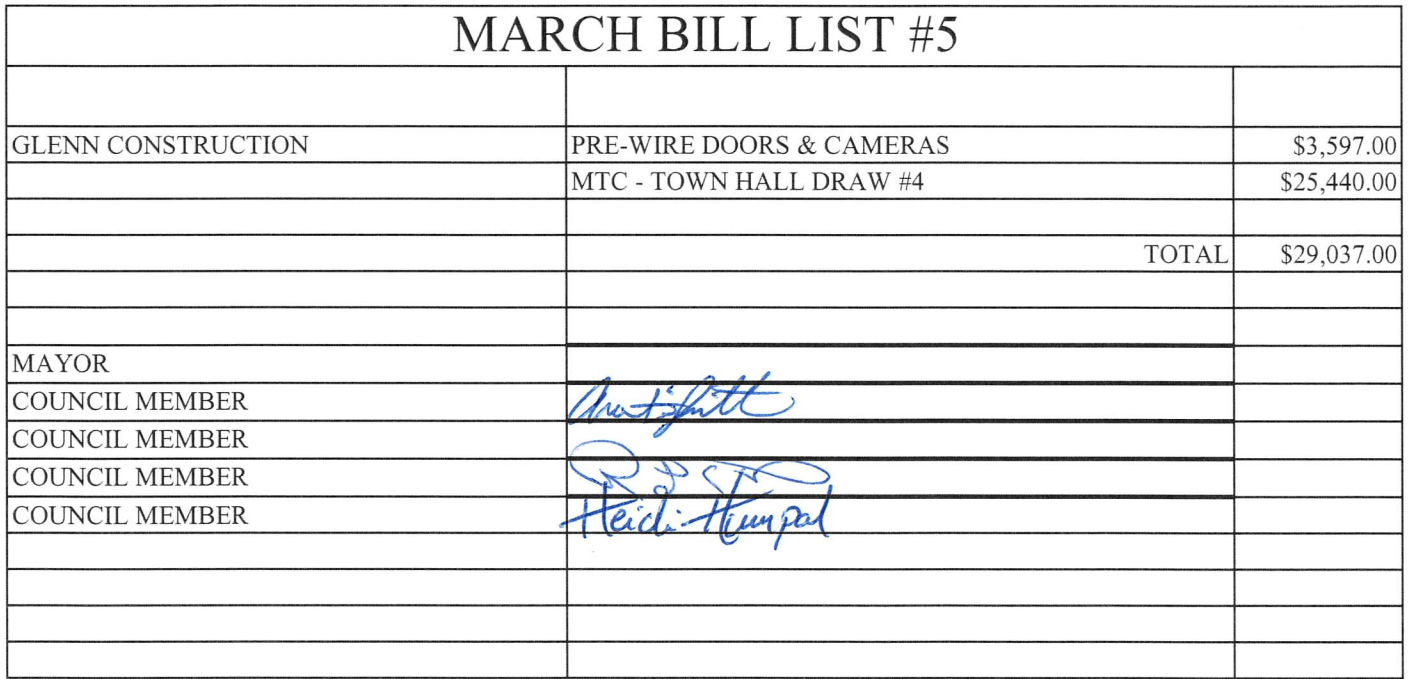 MARCH BILL LIST #5
GLENN CONSTRUCTION PRE-WIRE DOORS & CAMERAS $3,597.00
MTC - TOWN HALL DRAW #4 $25,440.00
TOTAL $29,037.00
MAYOR
COUNCIL MEMBER
COUNCIL MEMBER
COUNCIL MEMBER
COUNCIL MEMBER Heidi Humpal